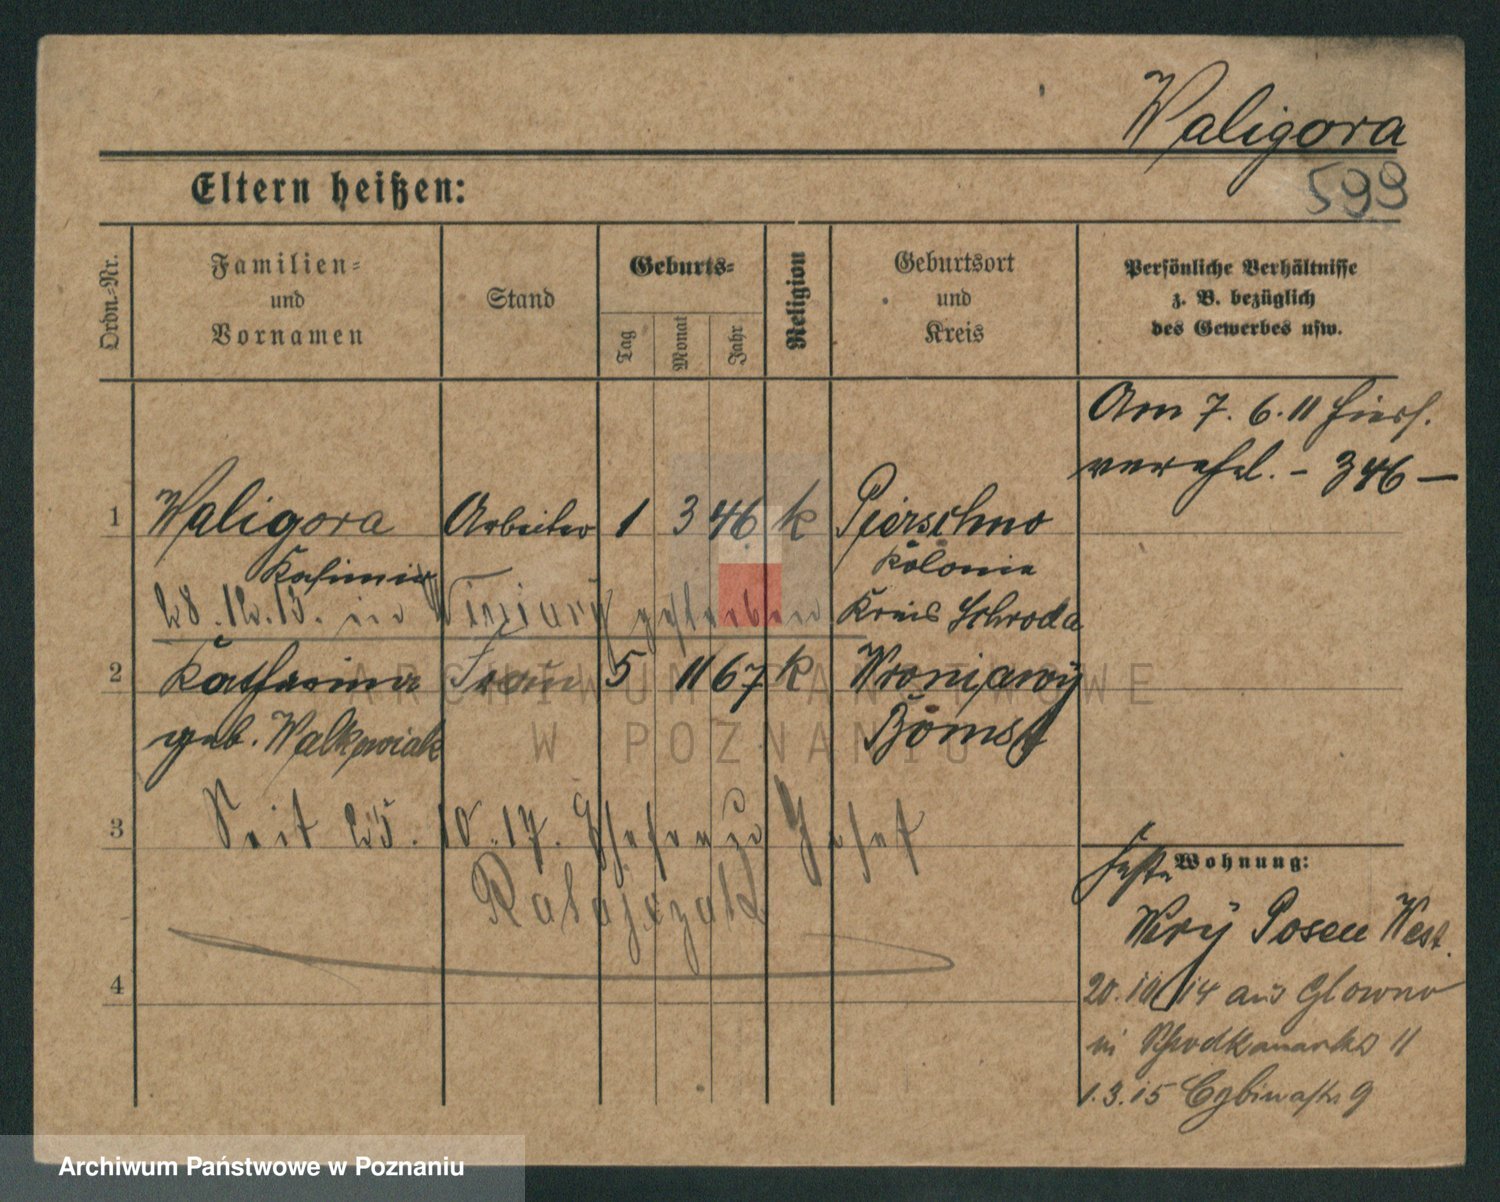 Waligora
599
Eltern heißen:
Ordn.-Nr.
Familien-
und
Vornamen
Stand
Geburts-
Tag
Monat
Jahr
Religion
Geburtsort
und
Kreis
Persönliche Verhältnisse
z. B. bezüglich
des Gewerbes usw.
Am 7. 6. 11 hies.
verehel. - 346 -
1 Waligora Arbeiter 1 3 46 k Pierschno
Kasimir Kolonie
28.12.13. in Winiary gestorben Kreis Schroda
2 Katharina Frau 5 11 67 k Wroniawy
geb. Walkowiak Bomst
3 Seit 25. 10. 17. Ehefrau Josef
Ratajczak
4
Wohnung:
Posen West.
20.10.14 aus Glowno
in 11
1.3.15 Cybinastr. 9
ARCHIWUM PAŃSTWOWE
W POZNANIU
Archiwum Państwowe w Poznaniu